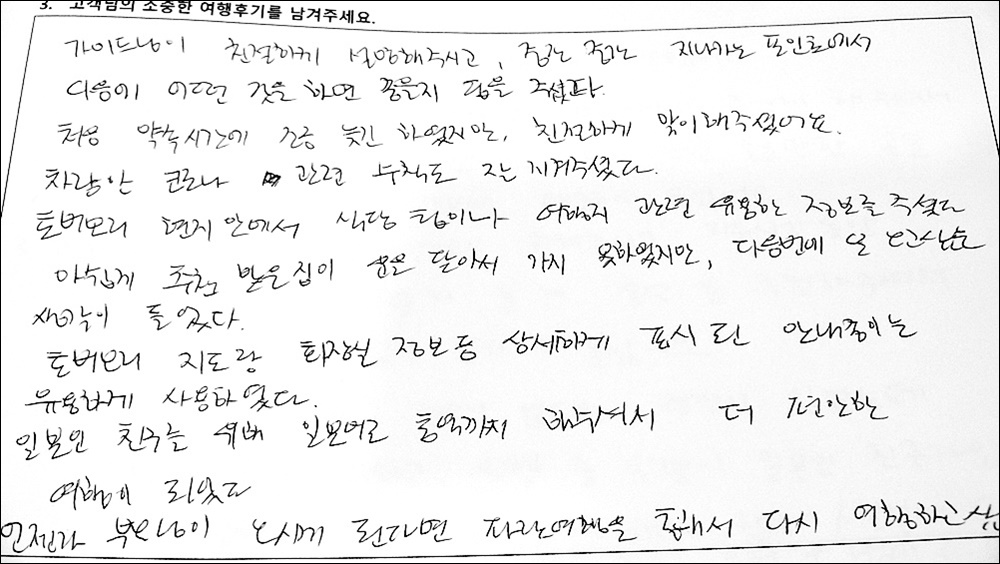 3. 고객님의 소중한 여행후기를 남겨주세요.
가이드님이 친절하게 설명해주시고, 중간 중간 지나가는 포인트에서
다음에 어떤 것을 하면 좋을지 팁을 주셨다.
처음 약속시간에 조금 늦긴 하였지만, 친절하게 맞이해주셨어요.
차량안 코로나 관련 수칙도 잘 지켜주셨다.
토버모리 현지 안에서 식당 팁이나 여행지 관련 유용한 정보를 주셨다
아쉽게 추천 받은집이 문을 닫아서 가지 못하였지만, 다음번에 또 오고싶은
생각이 들었다.
토버모리 지도랑 화장실 정보등 상세하게 표시 된 안내종이는
유용하게 사용하였다.
일본인 친구를 위해 일본어로 통역까지 해주셔서 더 편안한
여행이 되었다
언젠가 부모님이 오시게 된다면 파란여행을 통해서 다시 여행하고싶